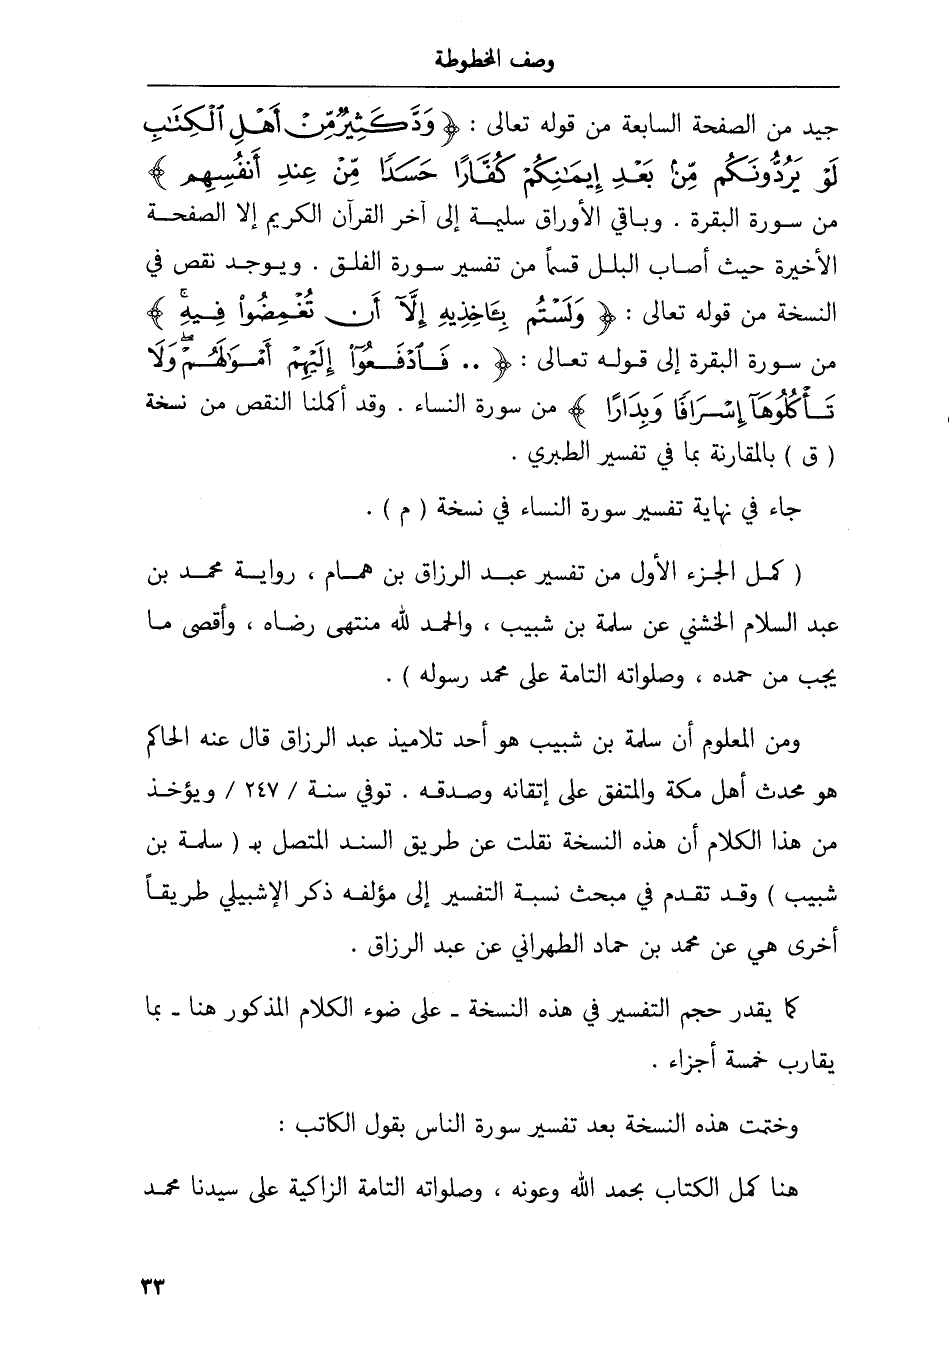 وصف المخطوطة
جيد من الصفحة السابعة من قوله تعالى : ﴿ وَدَّ كَثِيرٌ مِّنْ أَهْلِ ٱلْكِتَٰبِ
لَوْ يَرُدُّونَكُم مِّنۢ بَعْدِ إِيمَٰنِكُمْ كُفَّارًا حَسَدًا مِّنْ عِندِ أَنفُسِهِم ﴾
من سورة البقرة . وباقي الأوراق سليمة إلى آخر القرآن الكريم إلا الصفحة
الأخيرة حيث أصاب البلل قسماً من تفسير سورة الفلق . ويوجد نقص في
النسخة من قوله تعالى : ﴿ وَلَسْتُم بِـَٔاخِذِيهِ إِلَّآ أَن تُغْمِضُوا۟ فِيهِ ﴾
من سورة البقرة إلى قوله تعالى : ﴿ .. فَٱدْفَعُوٓا۟ إِلَيْهِمْ أَمْوَٰلَهُمْ ۖ وَلَا
تَأْكُلُوهَآ إِسْرَافًا وَبِدَارًا ﴾ من سورة النساء . وقد أكملنا النقص من نسخة
( ق ) بالمقارنة بما في تفسير الطبري .
جاء في نهاية تفسير سورة النساء في نسخة ( م ) .
( كمل الجزء الأول من تفسير عبد الرزاق بن همام ، رواية محمد بن
عبد السلام الخشني عن سلمة بن شبيب ، والحمد لله منتهى رضاه ، وأقصى ما
يجب من حمده ، وصلواته التامة على محمد رسوله ) .
ومن المعلوم أن سلمة بن شبيب هو أحد تلاميذ عبد الرزاق قال عنه الحاكم
هو محدث أهل مكة والمتفق على إتقانه وصدقه . توفي سنة / ٢٤٧ / ويؤخذ
من هذا الكلام أن هذه النسخة نقلت عن طريق السند المتصل بـ ( سلمة بن
شبيب ) وقد تقدم في مبحث نسبة التفسير إلى مؤلفه ذكر الإشبيلي طريقاً
أخرى هي عن محمد بن حماد الطهراني عن عبد الرزاق .
كما يقدر حجم التفسير في هذه النسخة ـ على ضوء الكلام المذكور هنا ـ بما
يقارب خمسة أجزاء .
وختمت هذه النسخة بعد تفسير سورة الناس بقول الكاتب :
هنا كمل الكتاب بحمد الله وعونه ، وصلواته التامة الزاكية على سيدنا محمد
٣٣